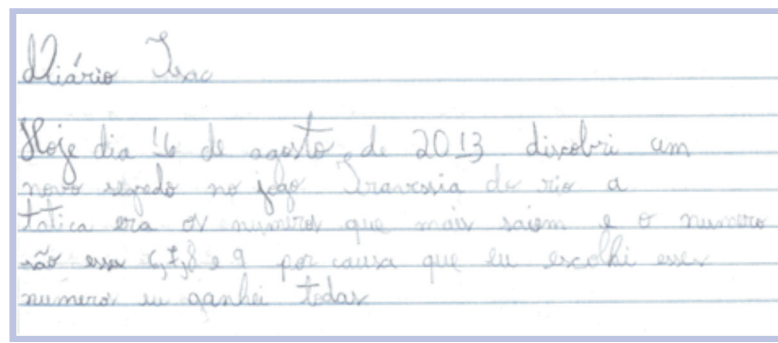 Diário Isac
Hoje dia 16 de agosto de 2013 discobri um
novo segedo no jogo Travessia do rio a
tatica era os numeros que mais saiem e o numero
são esses 6,7,8 e 9 por causa que eu escolhi esses
numeros eu ganhei todas